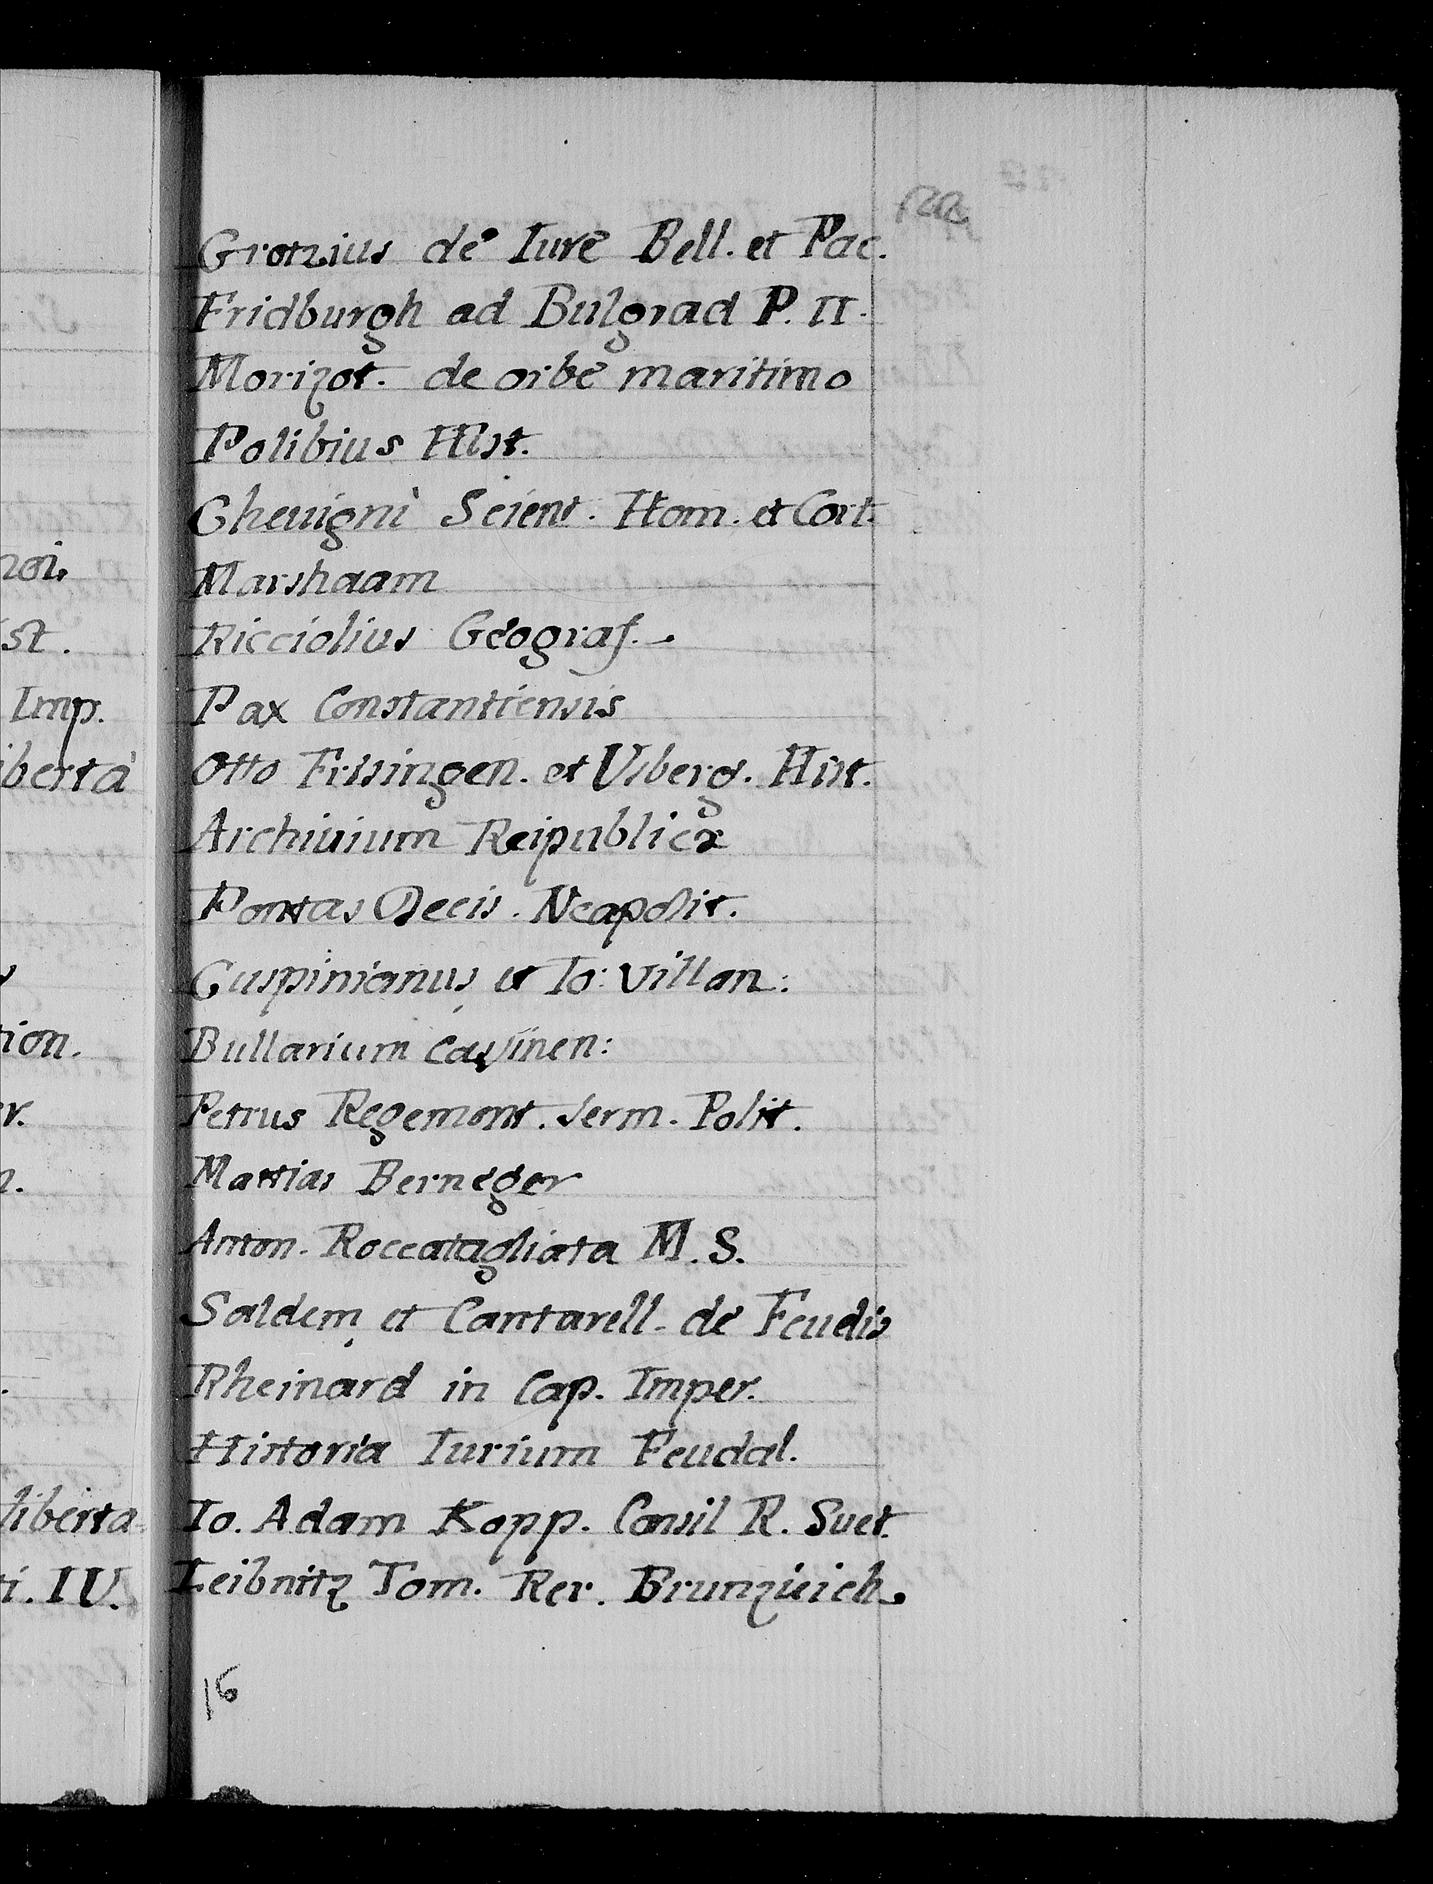 Grotzius de Iure Bell. et Pac.
Fridburgh ad Bulgrad P. II.
Morizot. de orbe maritimo
Polibius Hist.
Cheuignì Scient. Hom. et Cort.
Marshaam
Ricciolius Geograf.
Pax Constantiensis
Otto Frisingen. et Usberg. Hist.
Archiuium Reipublicæ
Pontas Decis. Neapolit.
Cuspinianus, et Io: Villan:
Bullarium Cassinen:
Petrus Regemont. Serm. Polit.
Mattias Berneger
Anton. Roccatagliata M.S.
Saldem, et Cantarell. de Feudis
Rheinard in Cap. Imper.
Historia Iurium Feudal.
Io. Adam Kopp. Consil R. Suet.
Leibnitz Tom. Rer. Brunzuich.
16
noi.
st.
Imp.
ibertà
tion.
r.
n.
liberta
ti. IV.